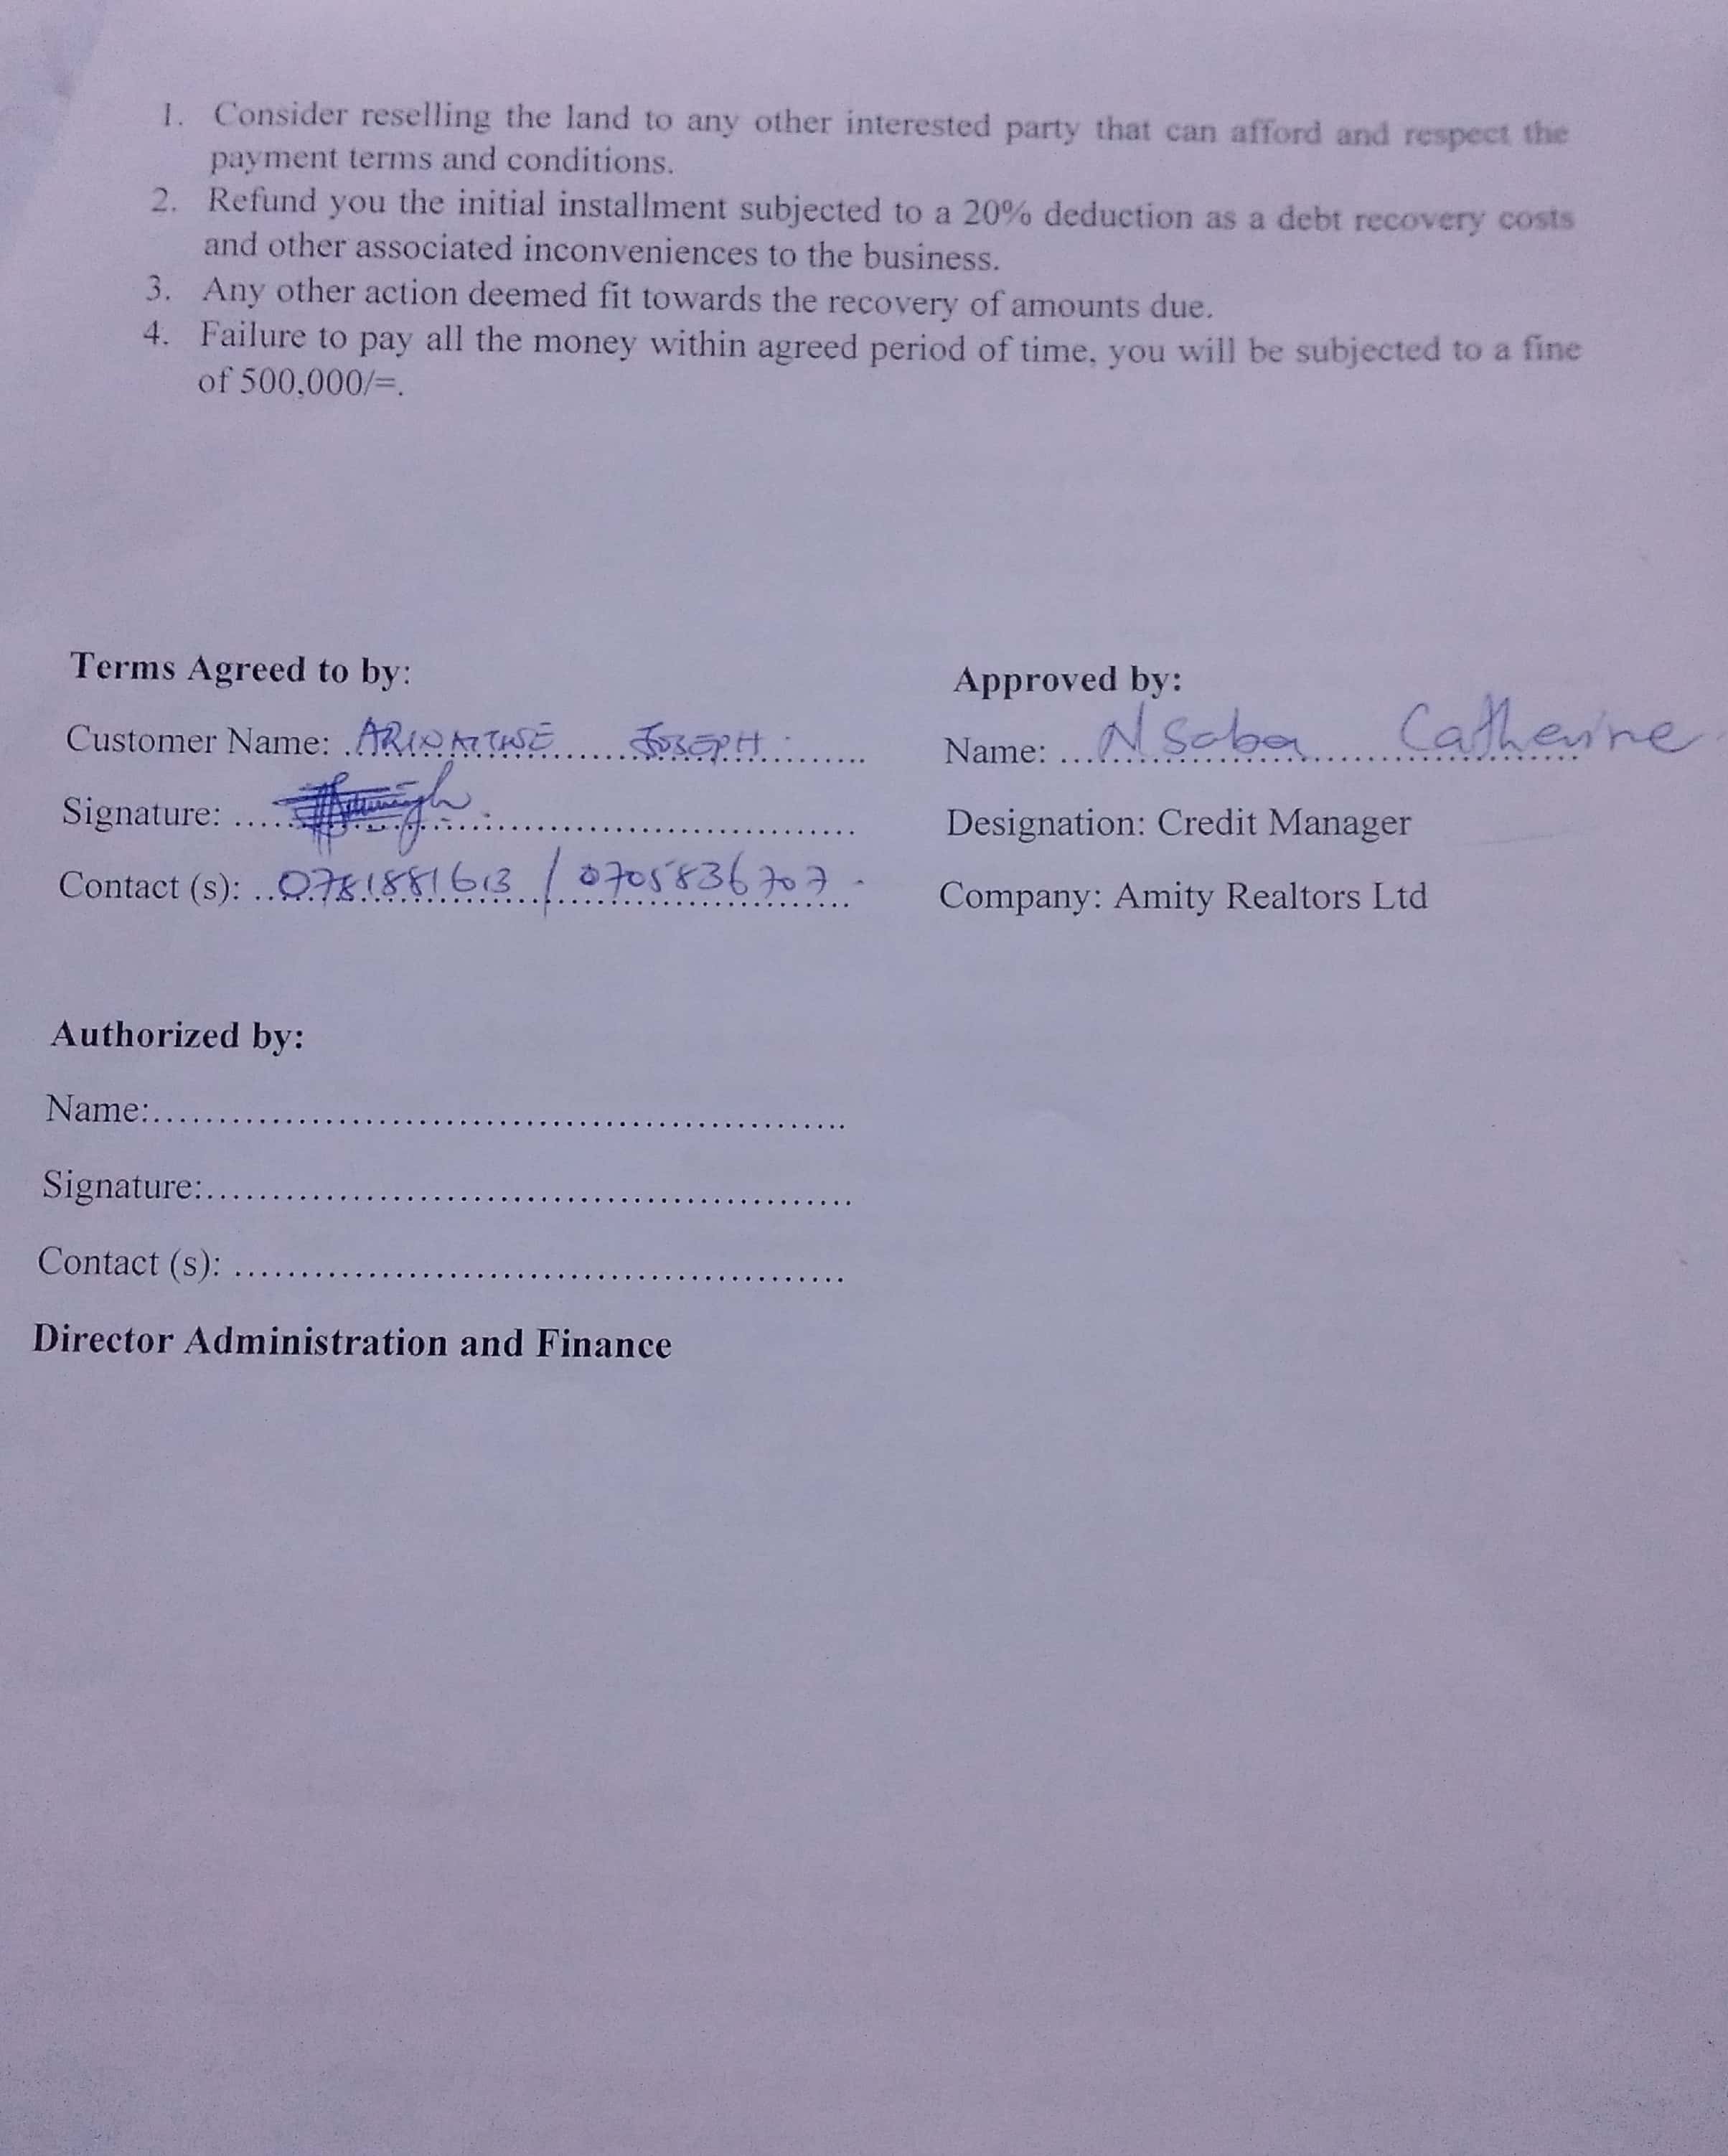 1. Consider reselling the land to any other interested party that can afford and respect the
payment terms and conditions.
2. Refund you the initial installment subjected to a 20% deduction as a debt recovery costs
and other associated inconveniences to the business.
3. Any other action deemed fit towards the recovery of amounts due.
4. Failure to pay all the money within agreed period of time, you will be subjected to a fine
of 500,000/=.
Terms Agreed to by:
Customer Name: ARINAITWE JOSEPH
Signature:
Contact (s): 0781881613 / 0705836707
Approved by:
Name: Nsaba Catherine
Designation: Credit Manager
Company: Amity Realtors Ltd
Authorized by:
Name:
Signature:
Contact (s):
Director Administration and Finance